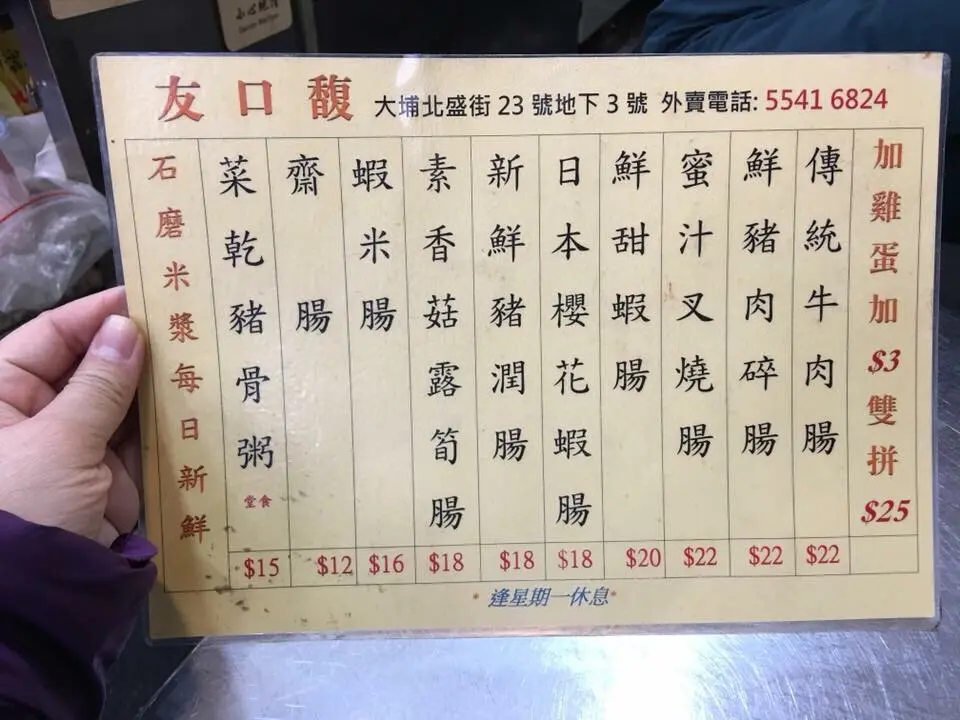 友口馥 大埔北盛街 23 號地下 3 號 外賣電話: 5541 6824
加雞蛋加$3雙拼$25
傳統牛肉腸 $22
鮮豬肉碎腸 $22
蜜汁叉燒腸 $22
鮮甜蝦腸 $20
日本櫻花蝦腸 $18
新鮮豬潤腸 $18
素香菇露筍腸 $18
蝦米腸 $16
齋腸 $12
菜乾豬骨粥 堂食 $15
石磨米漿每日新鮮
*逢星期一休息*
小心地滑